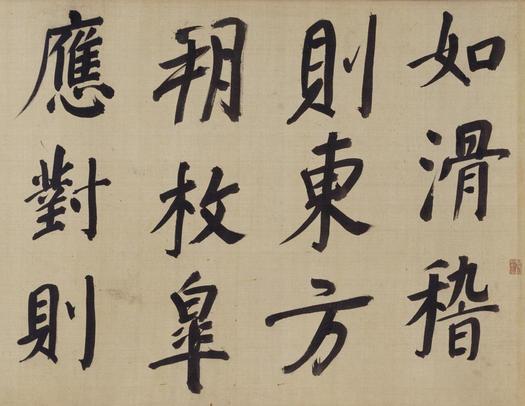 如滑稽
則東方
朔枚皐
應對則